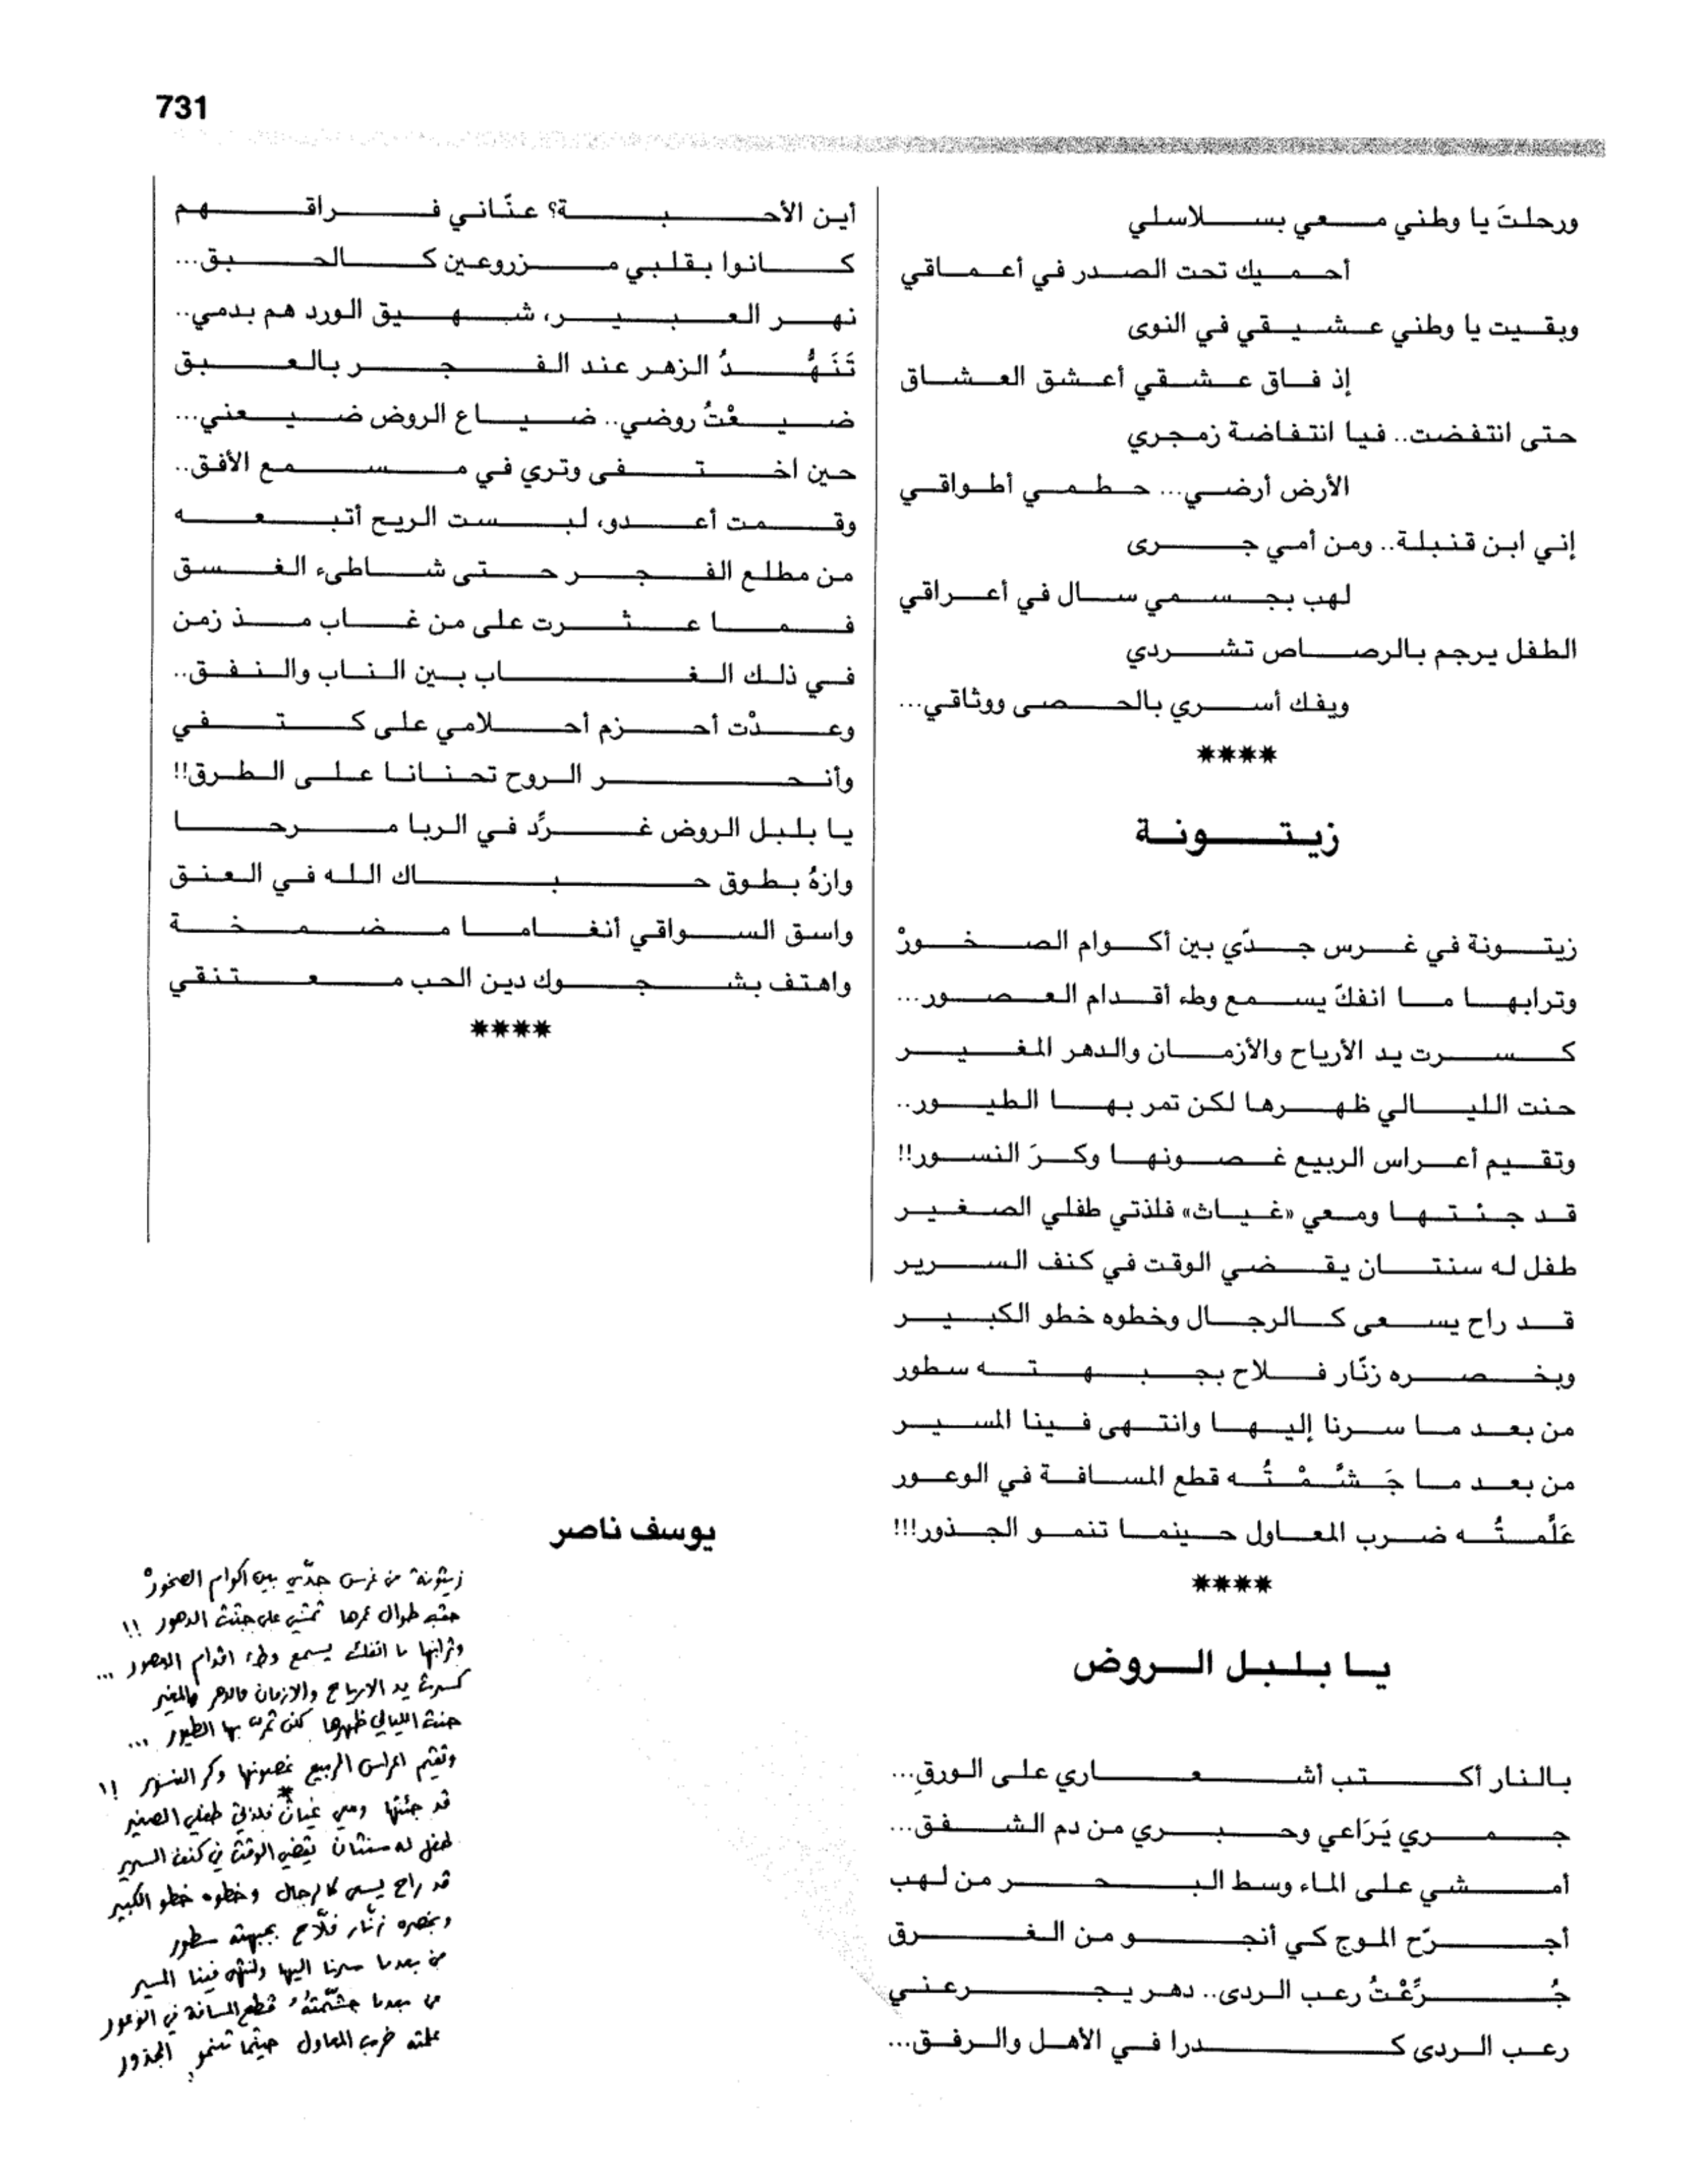 731
ورحلتَ يا وطني معي بسلاسلي
أحميك تحت الصدر في أعماقي
وبقيت يا وطني عشيقي في النوى
إذ فاق عشقي أعشق العشاق
حتى انتفضت.. فيا انتفاضة زمجري
الأرض أرضي... حطمي أطواقي
إني ابن قنبلة.. ومن أمي جرى
لهب بجسمي سال في أعراقي
الطفل يرجم بالرصاص تشردي
ويفك أسري بالحصى ووثاقي...
****
زيتونة
زيتونة في غرس جدّي بين أكوام الصخورْ
وترابها ما انفكّ يسمع وطء أقدام العصور...
كسرت يد الأرياح والأزمان والدهر المغير
حنت الليالي ظهرها لكن تمر بها الطيور..
وتقيم أعراس الربيع غصونها وكرَ النسور!!
قد جئتها ومعي «غياث» فلذتي طفلي الصغير
طفل له سنتان يقضي الوقت في كنف السرير
قد راح يسعى كالرجال وخطوه خطو الكبير
وبخصره زنّار فلاح بجبهته سطور
من بعد ما سرنا إليها وانتهى فينا المسير
من بعد ما جَشَّمْتُه قطع المسافة في الوعور
عَلَّمتُه ضرب المعاول حينما تنمو الجذور!!!
****
يا بلبل الروض
بالنار أكتب أشعاري على الورقِ...
جمري يَرَاعي وحبري من دم الشفق...
أمشي على الماء وسط البحر من لهب
أجرّح الموج كي أنجو من الغرق
جُرِّعْتُ رعب الردى.. دهر يجرعني
رعب الردى كدرا في الأهل والرفق...
أين الأحبة؟ عنّاني فراقهم
كانوا بقلبي مزروعين كالحبق...
نهر العبير، شهيق الورد هم بدمي..
تَنَهُّدُ الزهر عند الفجر بالعبق
ضيعْتُ روضي.. ضياع الروض ضيعني...
حين اختفى وتري في مسمع الأفق..
وقمت أعدو، لبست الريح أتبعه
من مطلع الفجر حتى شاطىء الغسق
فما عثرت على من غاب مذ زمن
في ذلك الغاب بين الناب والنفق..
وعدْت أحزم أحلامي على كتفي
وأنحر الروح تحنانا على الطرق!!
يا بلبل الروض غرِّد في الربا مرحا
وازهُ بطوق حباك الله في العنق
واسق السواقي أنغاما مضمخة
واهتف بشجوك دين الحب معتنقي
****
يوسف ناصر
زيتونة من غرس جدّي بين اكوام الصخورْ
حقبه طوال عمرها تمشي على جثث الدهور !!
وترابها ما انفك يسمع وطء اقدام العصور ...
كسرت يد الارياح والازمان والدهر المغير
حنت الليالي ظهرها لكن تمرّ بها الطيور ...
وتقيم اعراس الربيع غصونها وكر النسور !!
قد جئتها ومعي غياث* فلذتي طفلي الصغير
طفل له سنتان يقضي الوقت في كنف السرير
قد راح يسعى كالرجال وخطوه خطو الكبير
وبخصره زنّار فلّاح بجبهته سطور
من بعدما سرنا اليها وانتهى فينا المسير
من بعدما جشّمتهُ قطع المسافة في الوعور
علمته ضرب المعاول حيثما تنمو الجذور